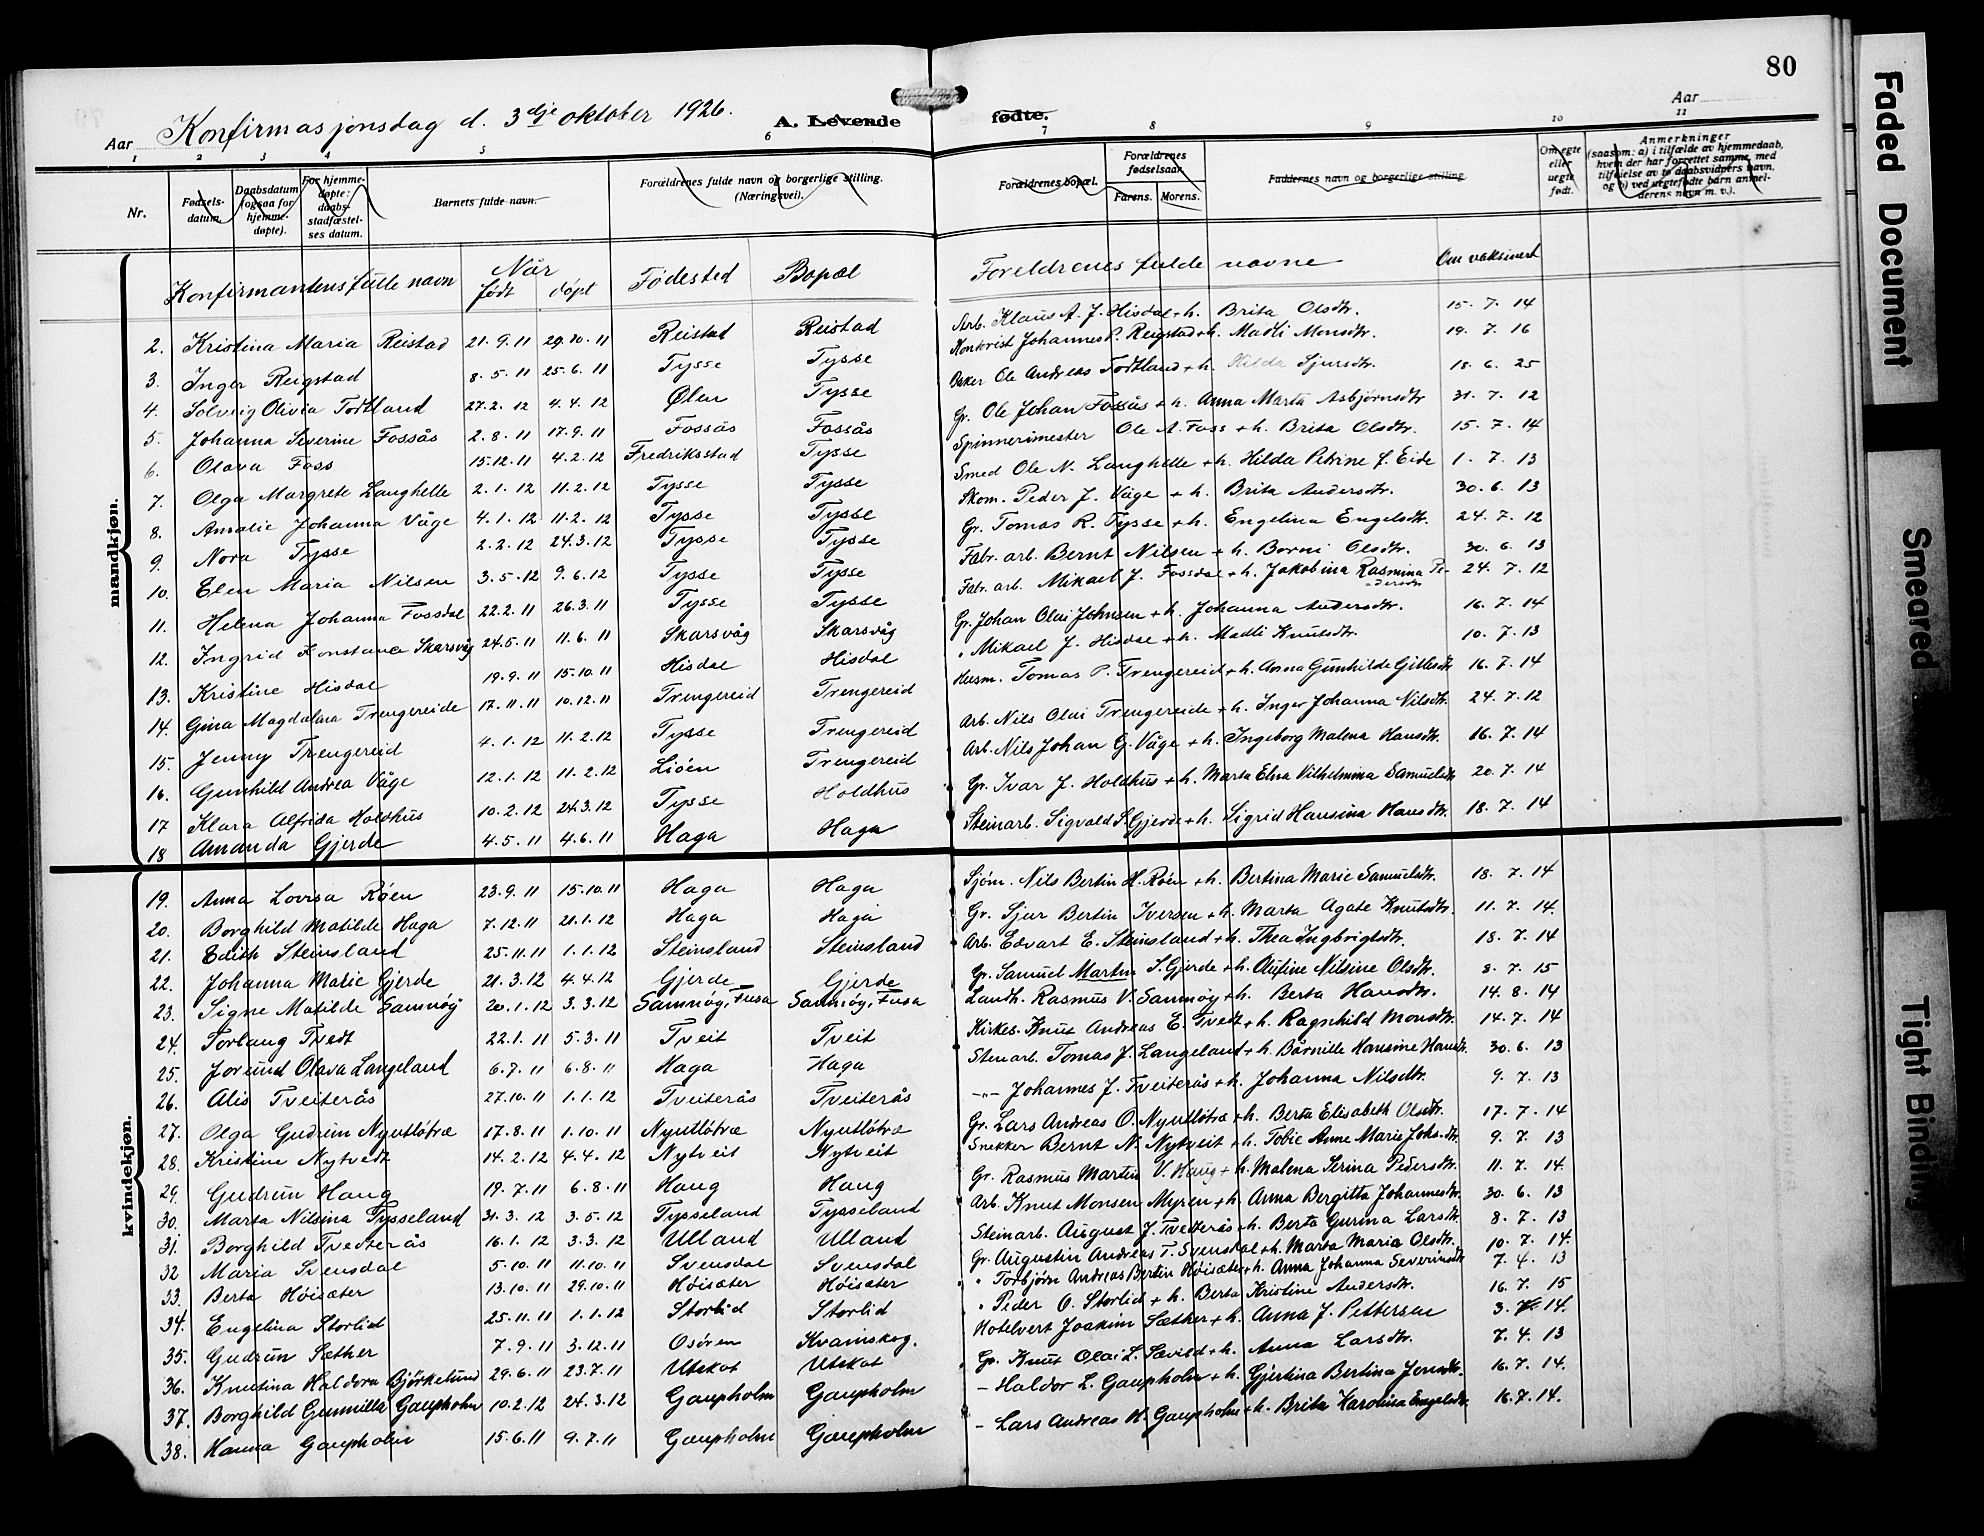 80
Konfirmasjonsdag d. 3dje oktober 1926.
Aar
A. Levende fødte.
Aar
1 2 3 4 5 6 7 8 9 10 11
Nr.
Fødsels-datum.
Daabsdatum (ogsaa for hjemme-døpte).
For hjemme-døpte: daabs-stadfæstel-ses datum.
Barnets fulde navn.
Forældrenes fulde navn og borgerlige stilling. (Næringsvei).
Forældrenes bopæl.
Forældrenes fødselsaar.
Farens. Morens.
Faddernes navn og borgerlige stilling.
Om egte eller uegte født.
Anmerkninger
(saasom: a) i tilfælde av hjemmedaab, hvem der har forrettet samme, med tilføielse av to daabsvidners navn, og b) ved uegtefødte barn anmel-derens navn m. v.).
mandkjøn.
kvindekjøn.
Konfirmantens fulle navn Når født døpt Fødested Bopæl Foreldrenes fulde navne Om vaksinert
2. Kristina Maria Reistad 21.9.11 29.10.11 Reistad Reistad Arb. Klaus A. J. Hisdal + h. Brita Olsdtr. 15.7.14
3. Inger Reigstad 8.5.11 25.6.11 Tysse Tysse Kontorist Johannes P. Reigstad + h. Madli Monsdtr. 19.7.16
4. Solveig Olivia Todtland 27.2.12 4.4.12 Ølen Tysse Baker Ole Andreas Todtland + h. Hilda Sjursdtr. 18.6.25
5. Johanna Severine Fossås 2.8.11 17.9.11 Fossås Fossås Gr. Ole Johan Fossås + h. Anna Marta Asbjørnsdtr 31.7.12
6. Olava Foss 15.12.11 4.2.12 Fredriksstad Tysse Spinnerimester Ole A. Foss + h. Brita Olsdtr. 15.7.14
7. Olga Margrete Langhelle 2.1.12 11.2.12 Tysse Tysse Smed Ole N. Langhelle + h. Hilda Petrine f. Eide 1.7.13
8. Amalie Johanna Våge 4.1.12 11.2.12 Tysse Tysse Skom. Peder J. Våge + h. Brita Andersdtr. 30.6.13
9. Nora Tysse 2.2.12 24.3.12 Tysse Tysse Gr. Tomas R. Tysse + h. Engelina Engelsdtr. 24.7.12
10. Elen Maria Nilsen 3.5.12 9.6.12 Tysse Tysse Fabr. arb. Bernt Nilsen + h. Borni Olsdtr. 30.6.13
11. Helena Johanna Fossdal 22.2.11 26.3.11 Tysse Tysse Fabr. arb. Mikael J. Fossdal + h. Jakobina Rasmina Pe-dersdtr 24.7.12
12. Ingrid Konstance Skarsvåg 24.5.11 11.6.11 Skarsvåg Skarsvåg Gr. Johan Olai Johnsen + h. Johanna Andersdtr. 16.7.14
13. Kristine Hisdal 19.9.11 15.10.11 Hisdal Hisdal " Mikael J. Hisdal + h. Madli Knutsdtr. 10.7.13
14. Gina Magdalena Trengereide 17.11.11 10.12.11 Trengereid Trengereid Husm. Tomas P. Trengereid + h. Anna Gunhilde Gitlesdtr 16.7.14
15. Jenny Trengereid 4.1.12 11.2.12 Tysse Trengereid Arb. Nils Olai Trengereide + h. Inger Johanna Nilsdtr. 24.7.12
16. Gunhild Andrea Våge 12.1.12 11.2.12 Liøen Trengereid Arb. Nils Johan G. Våge + h. Ingeborg Malena Hansdtr. 16.7.14
17 Klara Alfrida Holdhus 10.2.12 24.3.12 Tysse Holdhus Gr. Ivar J. Holdhus + h. Marta Elna Vilhelmina Samuelsdtr 20.7.14
18 Amanda Gjerde 4.5.11 4.6.11 Haga Haga Steinarb. Sigvald S. Gjerde + h. Sigrid Hansina Hansdtr. 18.7.14
19. Anna Lovisa Røen 23.9.11 15.10.11 Haga Haga Sjöm. Nils Bertin H. Røen + h. Bertina Marie Samuelsdtr. 18.7.14
20. Borghild Matilde Haga 7.12.11 21.1.12 Haga Haga Gr. Sjur Bertin Iversen + h. Marta Agate Knutsdtr. 11.7.14.
21. Edith Steinsland 25.11.11 1.1.12 Steinsland Steinsland Arb. Edvart E. Steinsland + h. Thea Ingbrigtsdtr. 18.7.14
22. Johanna Matie Gjerde 21.3.12 4.4.12 Gjerde Gjerde Gr. Samuel Martin S. Gjerde + h. Auline Nilsine Olsdtr. 8.7.15
23. Signe Matilde Samnøy 20.1.12 3.3.12 Samnøy, Fusa Samnøy, Fusa Landh. Rasmus V. Samnøy + h. Berta Hansdtr. 14.8.14
24. Torlaug Tvedt 22.1.11 5.3.11 Tveit Tveit Kirkes. Knut Andreas E. Tvedt + h. Ragnhild Monsdtr. 14.7.14
25. Jorund Olava Langeland 6.7.11 6.8.11 Haga Haga Stenarb. Tomas J. Langeland + h. Børnille Hansine Hansdtr. 30.6.13
26. Alis Tveiterås 27.10.11 1.1.12 Tveiterås Tveiterås -"- Johannes J. Tveiterås + h. Johanna Nilsdtr. 9.7.13
27. Olga Gudrun Nyutløtræ 17.8.11 1.10.11 Nyutløtræ Nyutløtræ Gr. Lars Andreas O. Nyutløtræ + h. Berta Elisabeth Olsdtr. 17.7.14
28. Kristine Nytvedt 14.2.12 4.4.12 Nytveit Nytveit Snekker Bernt N. Nytveit + h. Tobie Anne Marie Johs.dtr. 9.7.13
29. Gudrun Haug 19.7.11 6.8.11 Haug Haug Gr. Rasmus Martin V. Haug + h. Malena Serina Pedersdtr. 11.7.14.
30. Marta Nilsina Tysseland 31.3.12 3.5.12 Tysseland Tysseland Arb. Knut Monsen Myren + h. Anna Bergitta Johannesdtr. 30.6.13
31. Borghild Tveiterås 16.1.12 3.3.12 Ulland Ulland Steinarb. August J. Tveiterås + h. Berta Gurina Larsdtr. 8.7.13
32 Maria Svensdal 5.10.11 11.10.11 Svensdal Svensdal Gr. Augustin Andreas T. Svensdal + h. Marta Maria Olsdtr. 10.7.14.
33. Berta Høisæter 13.10.11 29.10.11 Høisæter Høisæter " Torbjørn Andreas Bertin Høisæter + h. Anna Johanna Severinsdtr 7.4.13
34. Engelina Storlid 25.11.11 1.1.12 Storlid Storlid " Peder O. Storlid + h. Berta Kristine Andersdtr. 16.7.15
35. Gudrun Sæther 7.9.11 3.12.11 Osøren Kvamskog. Hotelvert Joakim Sæther + h. Anna J. Pettersen 3. 14.
36. Knutina Haldora Björkelund 29.6.11 23.7.11 Utskot Utskot Gr. Knut Olai L. Sævild + h. Anna Larsdtr. 7.4.13
37. Borghild Gunnilla Gaupholm 10.2.12 24.3.12 Gaupholm Gaupholm - Haldor L. Gaupholm + h. Gjertina Bertina Jensdtr. 16.7.14.
38. Hanna Gaupholm 15.6.11 9.7.11 Gaupholm Gaupholm - Lars Andreas H. Gaupholm + h. Brita Karolina Engelsdtr. 16.7.14.
Faded Document
Smeared
Tight Binding